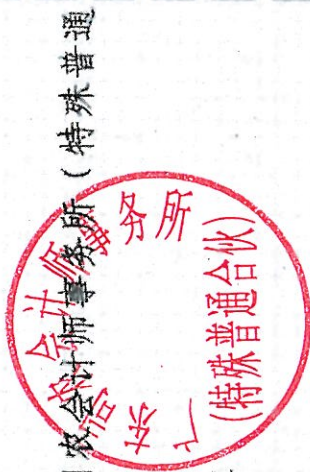 农会计师事务所（特殊普通
广东司农会计师事务所
(特殊普通合伙)